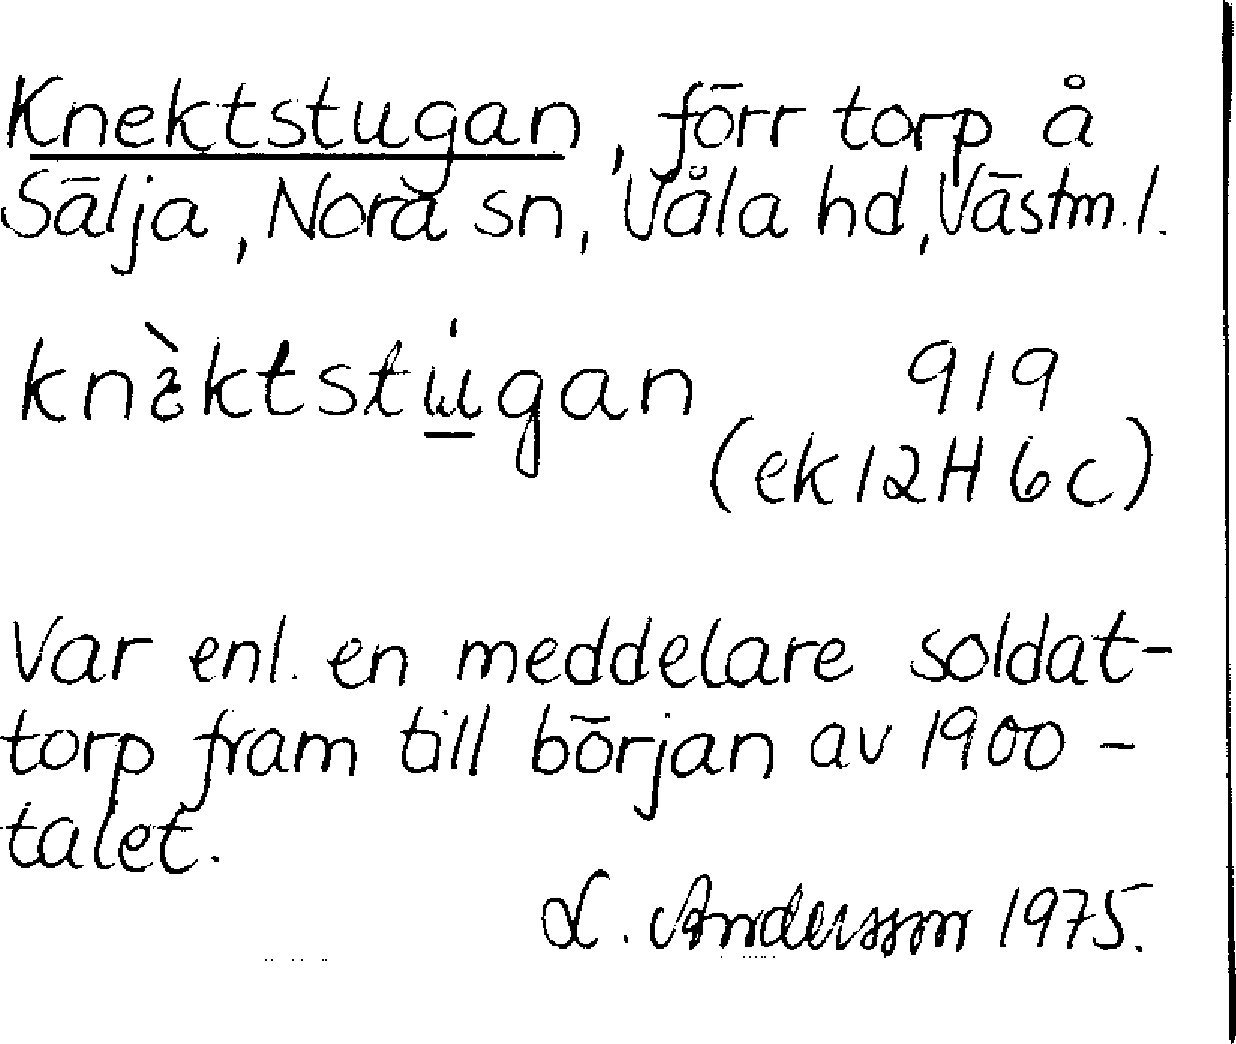 Knektstugan, förr torp å
Sälja, Nora sn, Våla hd, Västm.l.
919
(ek 12H6c)
Var enl. en meddelare soldat-
torp fram till början av 1900-
talet.
L. Andersson 1975.